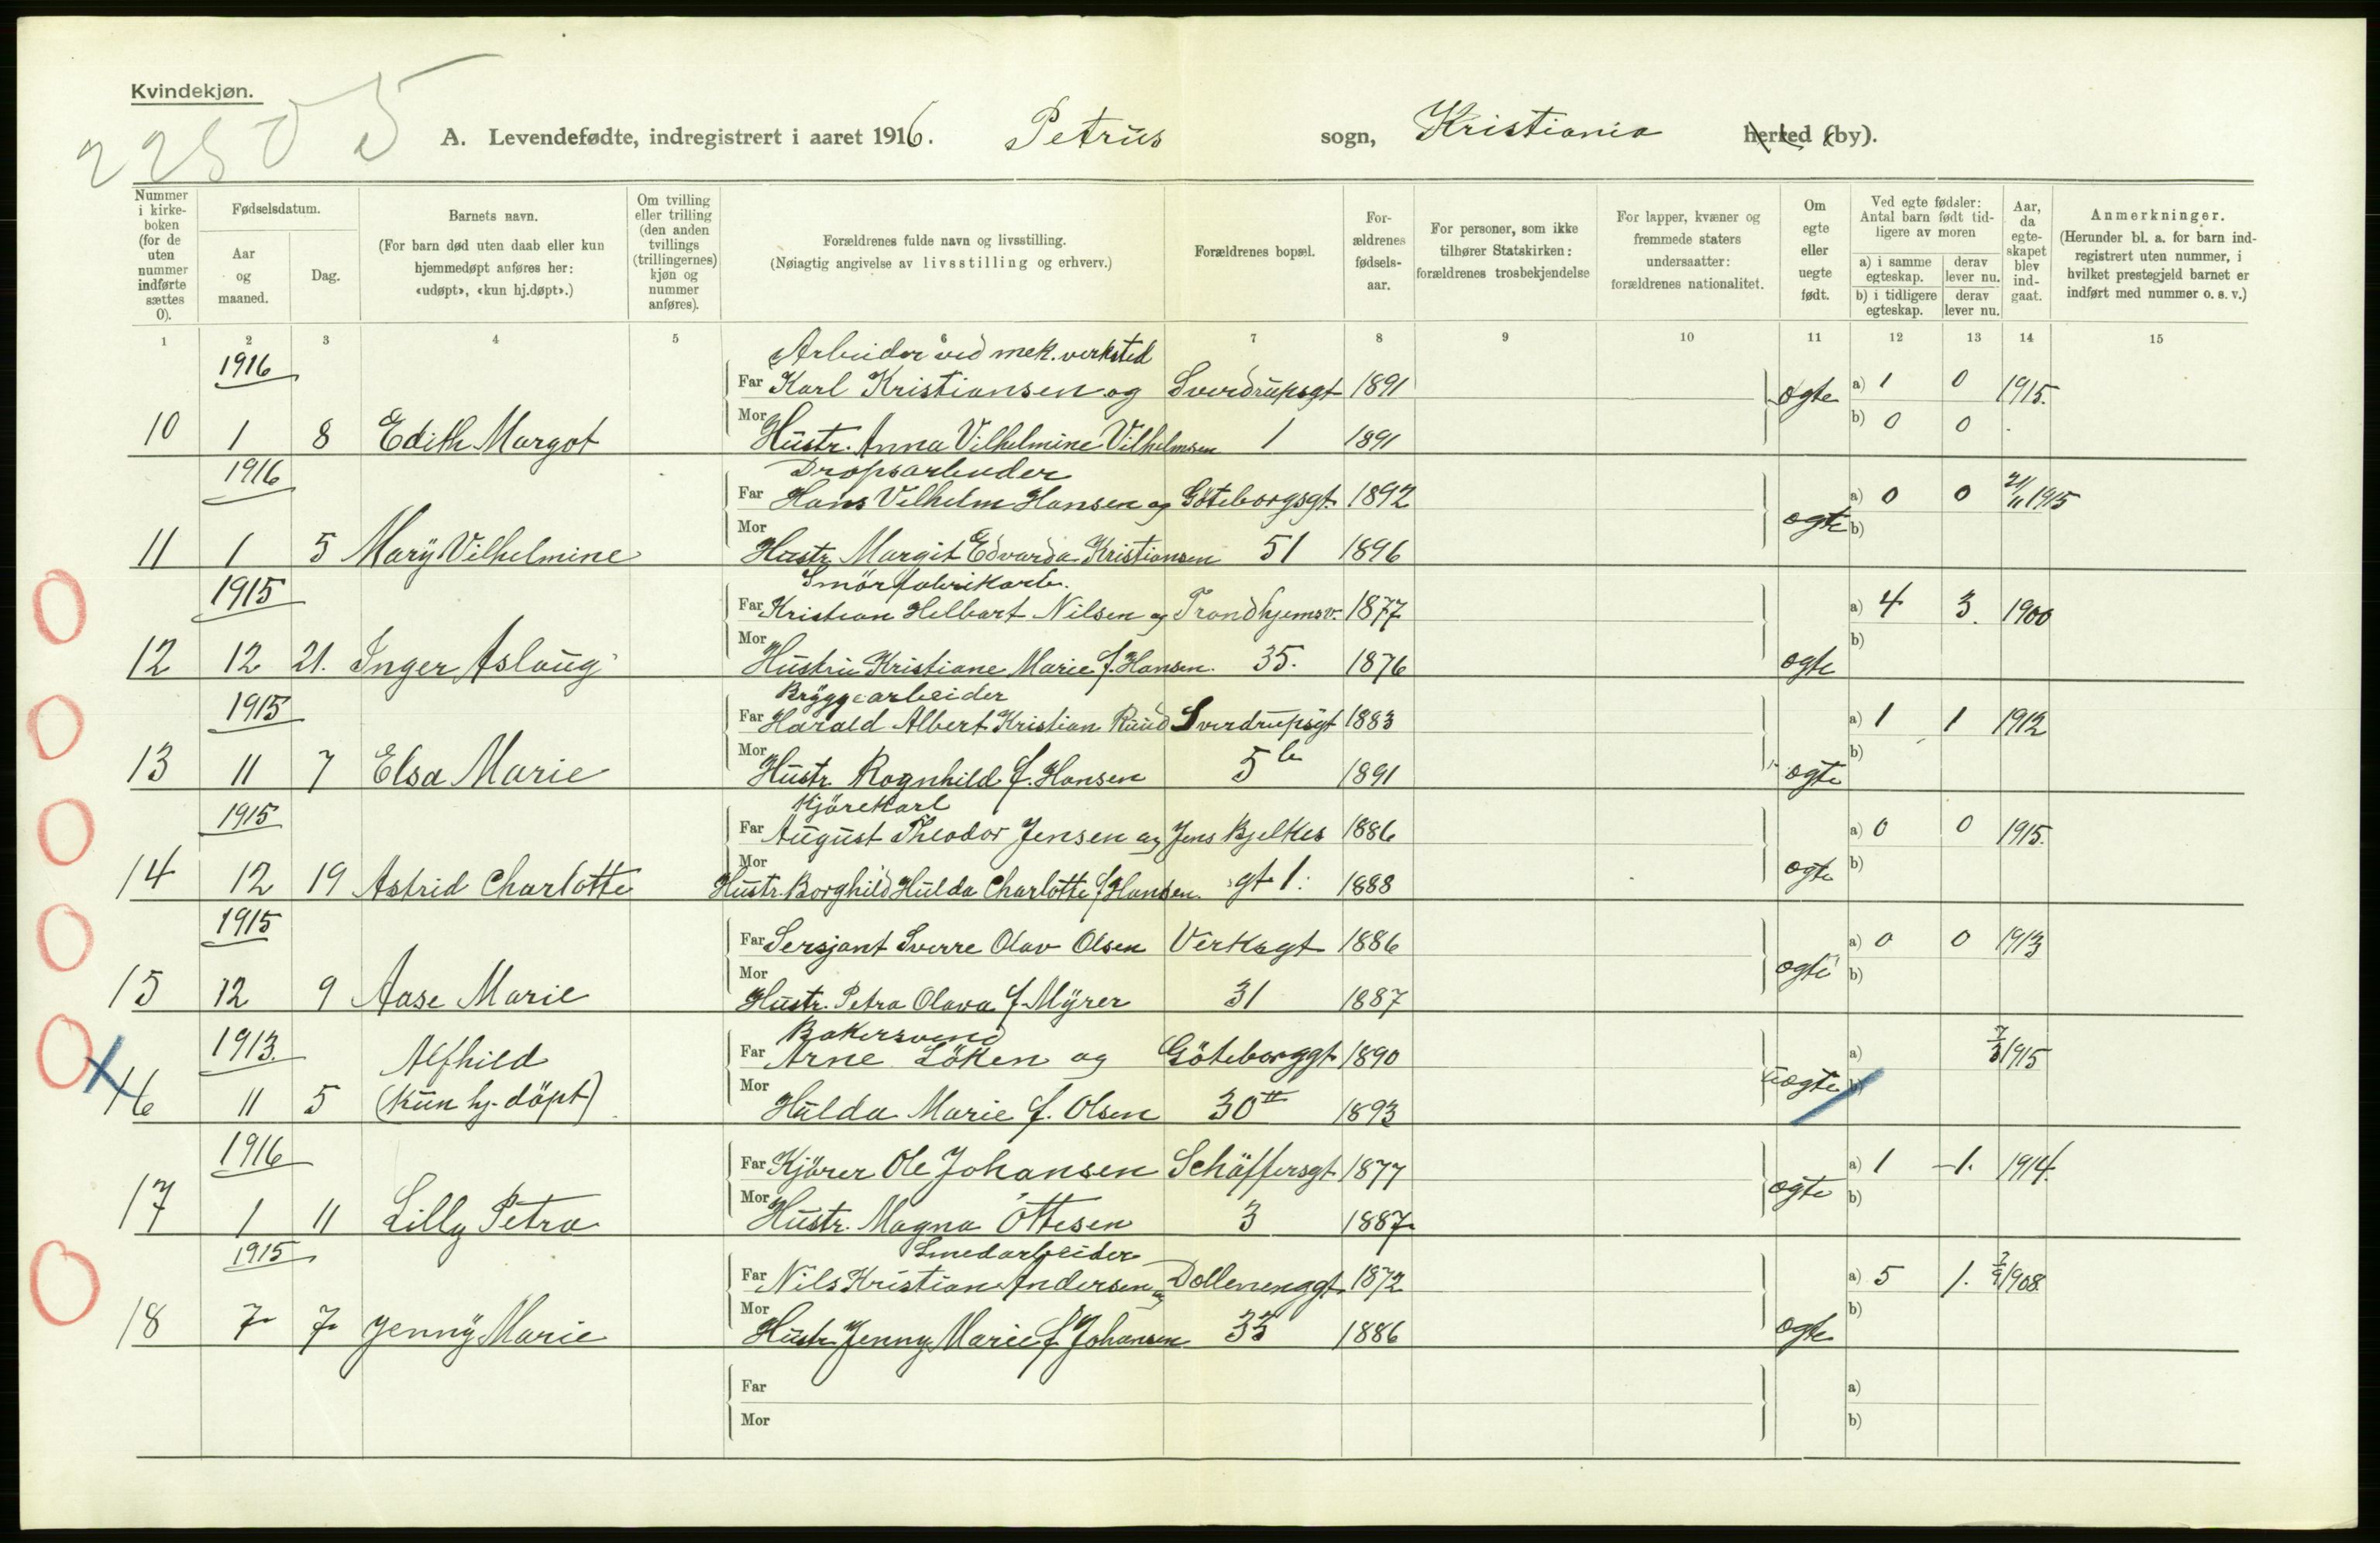 Kvindekjøn.
22505
A. Levendefødte, indregistrert i aaret 1916. Petrus sogn, Kristiania herred (by).
Nummer i kirkeboken (for de uten nummer indførte sættes 0).
Fødselsdatum.
Aar og maaned.
Dag.
Barnets navn.
(For barn død uten daab eller kun hjemmedøpt anføres her: «udøpt», «kun hj.døpt».)
Om tvilling eller trilling (den anden tvillings (trillingernes) kjøn og nummer anføres).
Forældrenes fulde navn og livsstilling.
(Nøiagtig angivelse av livsstilling og erhverv.)
Forældrenes bopæl.
Forældrenes fødselsaar.
For personer, som ikke tilhører Statskirken: forældrenes trosbekjendelse
For lapper, kvæner og fremmede staters undersaatter: forældrenes nationalitet.
Om egte eller uegte født.
Ved egte fødsler: Antal barn født tidligere av moren
a) i samme egteskap.
derav lever nu.
b) i tidligere egteskap.
derav lever nu.
Aar, da egteskapet blev indgaat.
Anmerkninger.
(Herunder bl. a. for barn indregistrert uten nummer, i hvilket prestegjeld barnet er indført med nummer o. s. v.)
1 2 3 4 5 6 7 8 9 10 11 12 13 14 15
1916 Arbeider ved mek. verksted
Far Karl Kristiansen og Sverdrupsgt 1891 egte a) 1 0 1915.
10 1 8 Edith Margot Mor Hustr. Anna Vilhelmine Vilhelmsen 1 1891 b) 0 0
1916 Dropsarbeider
Far Hans Vilhelm Hansen og Göteborgsgt. 1892 egte a) 0 0 21/11 1915
11 1 5 Mary Vilhelmine Mor Hustr. Margit Edvarda Kristiansen 51 1896 b)
1915 Smörfabrikarb.
Far Kristian Helbart Nilsen og Trondhjemsv. 1877 a) 4 3. 1900
12 12 21. Inger Aslaug Mor Hustru Kristiane Marie f. Hansen. 35. 1876 egte b)
1915 Bryggearbeider
Far Harald Albert Kristian Ruud Sverdrupsgt 1883 a) 1 1 1912
13 11 7 Elsa Marie Mor Hustr. Ragnhild f. Hansen 5b 1891 egte b)
1915 Kjörekarl
Far August Theodor Jensen og Jens Bjelkes 1886 a) 0 0 1915.
14 12 19 Astrid Charlotte Mor Hustr. Borghild Hulda Charlotte f. Hansen. gt 1. 1888 egte b)
1915 Far Sersjant Sverre Olav Olsen Verksgt 1886 a) 0 0 1913
15 12 9 Aase Marie Mor Hustr. Petra Olava f. Myrer 31 1887 egte b)
1913. Bakersvend
Alfhild Far Arne Löken og Göteborggt 1890 a) 7/3 1915
16 11 5 (kun hj. döpt) Mor Hulda Marie f. Olsen 30 II 1893 uegte b)
1916 Far Kjörer Ole Johansen Schäffersgt 1877 a) 1 1. 1914.
17 1 11 Lilly Petra Mor Hustr. Magna Ottesen 3 1887 egte b)
1915 Smedarbeider
Far Nils Kristian Andersen og Dællenenggt. 1872 a) 5 1. 2/9 1908
18 7 7 Jenny Marie Mor Hustr. Jenny Marie f. Johansen 33 1886 egte b)
Far a)
Mor b)